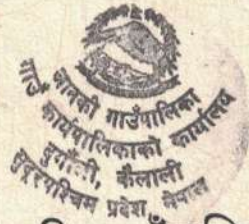 जानकी गाउँपालिका
गाउँ कार्यपालिकाको कार्यालय
दुर्गौली, कैलाली
सुदूरपश्चिम प्रदेश नेपाल